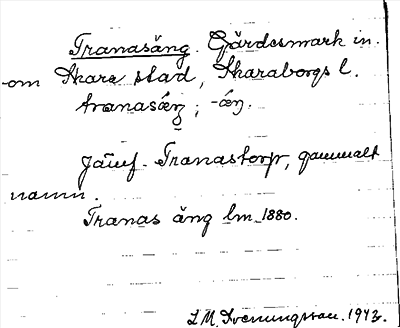 Tranasäng. Gärdesmark in-
om Skara stad, Skaraborgs l.
tranasäŋ; -äŋ.
Jämf. Tranastorp, gammalt
namn.
Tranas äng lm. 1880.
L.M. Svenungsson. 1943.